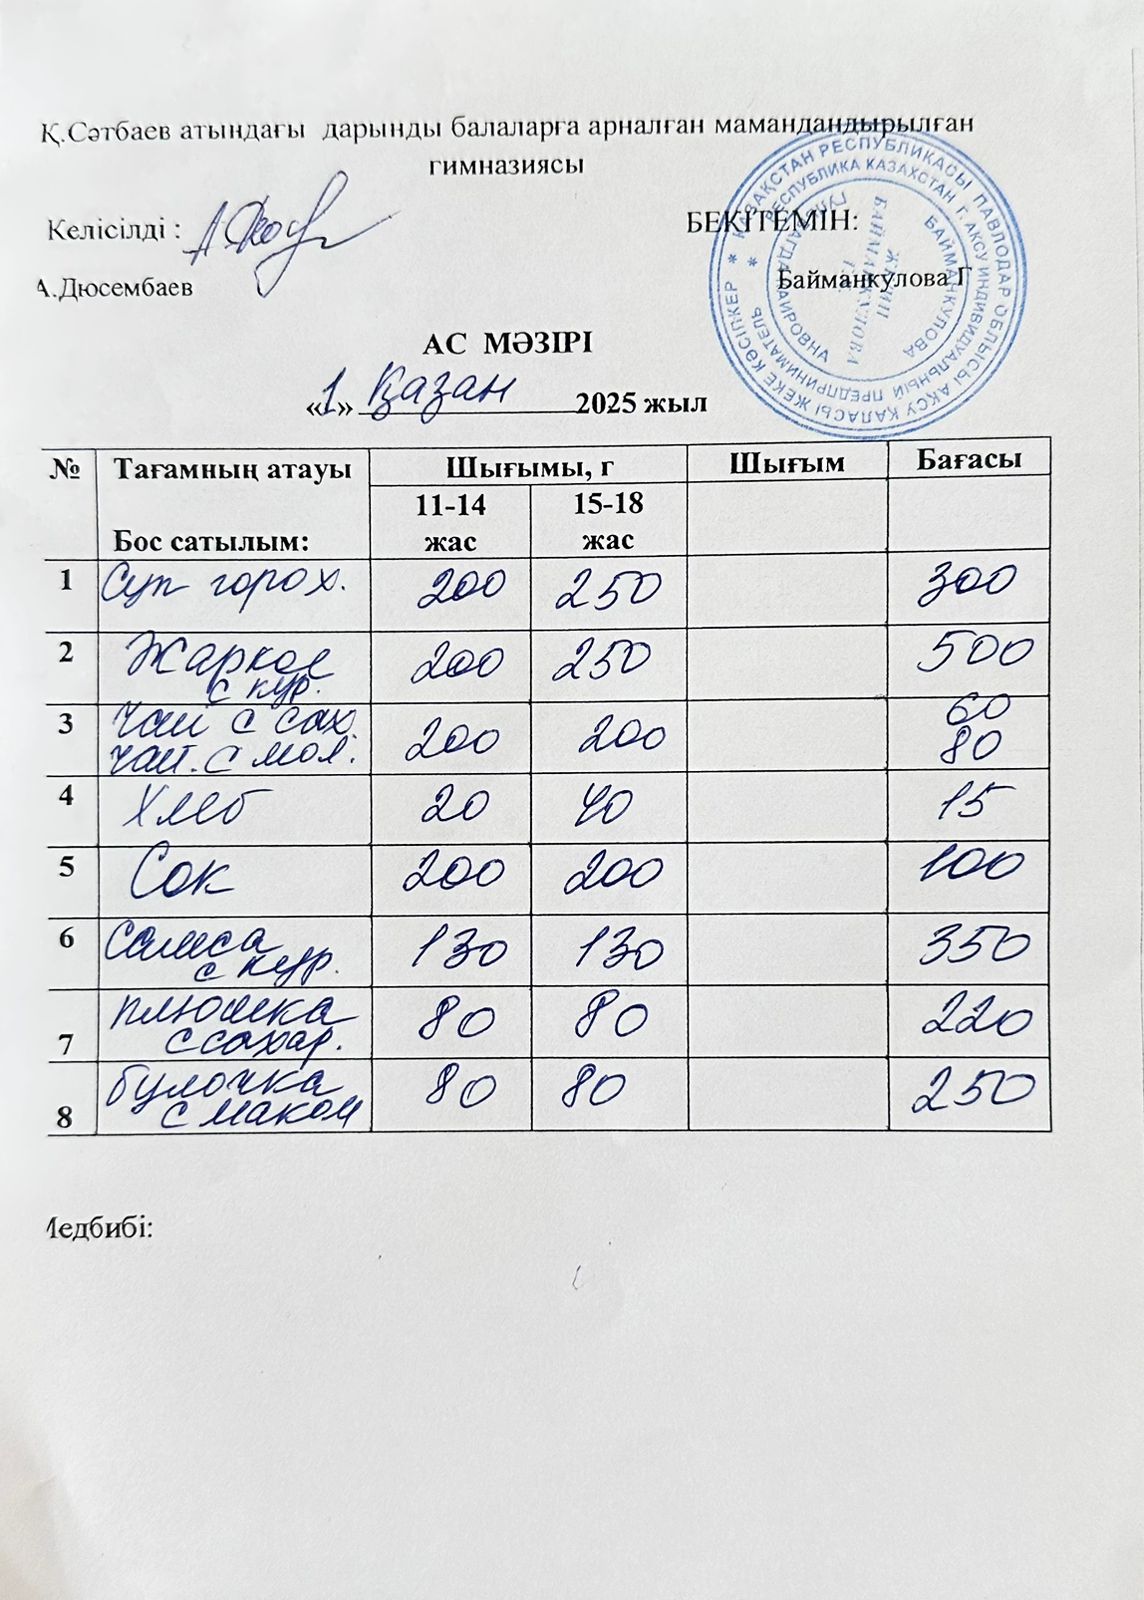 Қ.Сәтбаев атындағы дарынды балаларға арналған мамандандырылған
гимназиясы
Келісілді :
БЕКІТЕМІН:
А.Дюсембаев
Байманкулова Г
ҚАЗАҚСТАН РЕСПУБЛИКАСЫ ПАВЛОДАР ОБЛЫСЫ АҚСУ ҚАЛАСЫ ЖЕКЕ КӘСІПКЕР
РЕСПУБЛИКА КАЗАХСТАН Г. АКСУ ИНДИВИДУАЛЬНЫЙ ПРЕДПРИНИМАТЕЛЬ
БАЙМАНКУЛОВА
АС МӘЗІРІ
«1» Қазан 2025 жыл
№ Тағамның атауы Шығымы, г Шығым Бағасы
11-14 15-18
Бос сатылым: жас жас
1 Суп горох. 200 250 300
2 Жаркое 200 250 500
с кур.
3 чай с сах. 200 200 60
чай. с мол. 80
4 Хлеб 20 40 15
5 Сок 200 200 100
6 Самса 130 130 350
с кур.
7 плюшка 80 80 220
с сахар.
8 булочка 80 80 250
с маком
Медбибі: